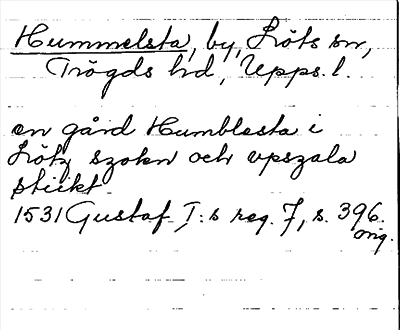 Hummelsta, by, Löts sn,
Trögds hd, Upps. l.
en gård Humblesta i
Lötz szokn och vpszala
stickt
1531 Gustaf I:s reg. 7, s. 396.
orig.